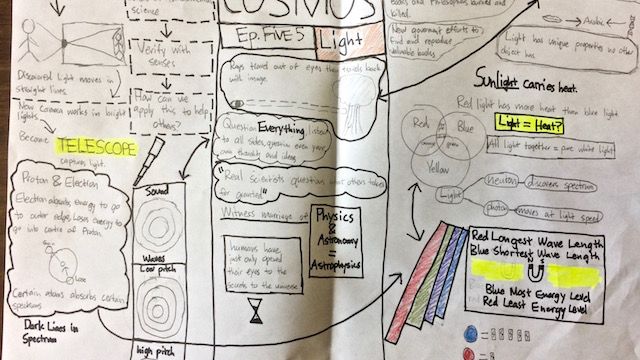 science
Verify with
senses
How can we
apply this to help
others?
Discovered light moves in
straight lines.
Now camera works in bright
lights.
Become
TELESCOPE
captures light.
Proton & Electron
Electron absorbs energy to go
to outer edge. Loses energy to
go into centre of Proton.
Lose
Certain atoms absorbs certain
spectrums
Dark Lines in
Spectrum
Sound
Waves
Low pitch
high pitch
COSMOS
Ep. FIVE 5
Light
Rays travel out of eyes then travels back
with image.
Question Everything listen
to all sides, question even your
own thoughts and ideas
"Real scientists question what others takes
for granted"
Witness marriage of
Physics
&
Astronomy
=
Astrophysics
humans have
just only opened
their eyes to the
secrets to the universe
Books and Philosophers burned and
killed.
New government efforts to
find and reproduce
valuable books
Arabic
Light has unique properties no other
object has
Sunlight carries heat.
Red light has more heat than blue light.
Red
Blue
Yellow
Light = Heat?
All light together = pure white light
Light
neutron
discovers spectrum
photon
moves at light speed
Red Longest Wave Length
Blue Shortest Wave Length
N S
Blue Most Energy Level
Red Least Energy Level